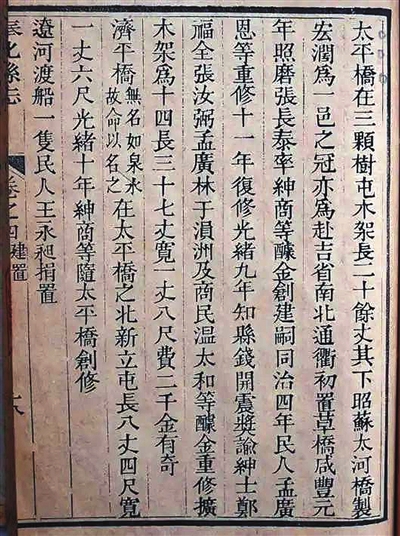 太平橋在三顆樹屯木架長二十餘丈其下昭蘇太河橋製
宏濶為一邑之冠亦為赴吉省南北通衢初置草橋咸豐元
年照磨張長泰率紳商等醵金創建嗣同治四年民人孟廣
恩等重修十一年復修光緒九年知縣錢開震奬諭紳士鄭
福全張汝弼孟廣林于湨洲及商民温太和等醵金重修擴
木架為十四長三十七丈寬一丈八尺費二千金有奇
濟平橋無名如泉水故命以名之在太平橋之北新立屯長八丈四尺寬
一丈六尺光緒十年紳商等隨太平橋創修
遼河渡船一隻民人王永昶捐置
奉化縣志 卷之四建置 十八